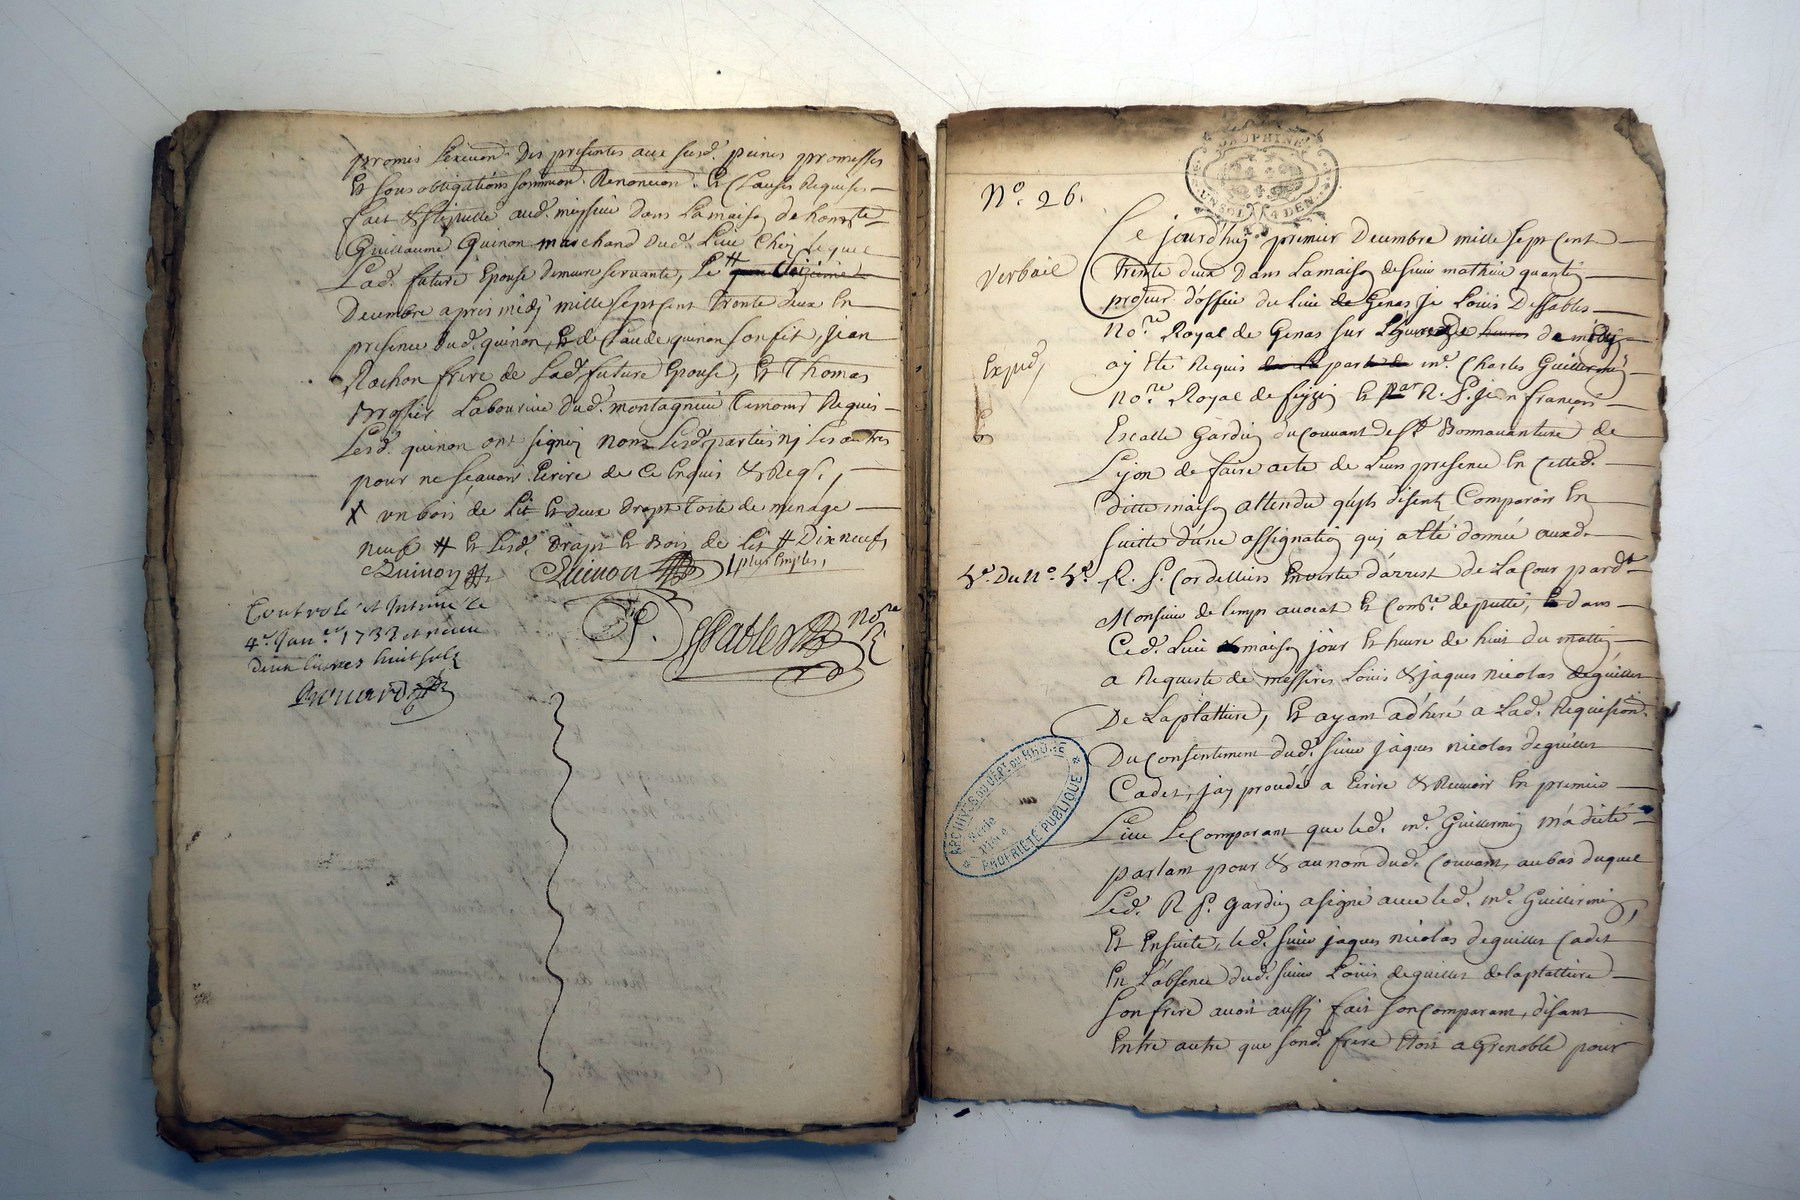 promis L'execuon. Des presentes aux susd. peines promesses
Et sous obligations soumission. Renonciaon. Et Clauses Requises
fait & stipullé aud. missieu dans La maison de honeste
Guillaume Quinon marchand dud. Lieu Chez lequel
Lad. future Epouse demeure servante, Le #
Decembre apres midy mille sept cent Trente deux En
presence dud. quinon, Et de Claude quinon son fils, jean
Rachon frere de Lad. future Epouse, Et Thomas
Laboureur dud. montagnieu temoins Requis
Lesd. quinon ont signez non Lesd. parties nj Les autres
pour ne sçavoir Ecrire de ce Enquis & Reqs.,
X un bois de Lit Et deux draps toile de menage
neufs # Et Lesd. Draps Et Bois de Lit # Dix neufs
Quinon Quinon
plus Emples,
Controlé et Insinué le
4e. Janer. 1733 et receu
deux livres huit sols
L. Dessables Nore. R.
DAUPHINE
UN SOL 4 DEN.
No. 26.
Ce jourd'huy premier Decembre mille sept cent
Verbail
Trente deux dans La maison de sieur mathieu quantin
procur. d'office du Lieu de Genas je Loüis Dessables
Nore. Royal de Genas sur L'heure de midy
Exped,
ay Eté Requis par me. Charles Guillermin
Nore. Royal de feyzin Et par R. P. jean françois
Escalle Gardien du Couvant de St. Bonnavanture de
Lyon de faire acte de Leur presence En Cette d.
ditte maison attendu qu'jls disent Comparoir En
suitte d'une assignation qui a Eté donnée auxd.
R. P. Cordelliers En vertu d'arrest de La Cour pard.
Monsieur de Lemps avocat Et Comre. deputté, dans
Ce d. Lieu maison jour Et heure de huit du mattin
a Requeste de messires Louis & jaques nicolas deguillet
De Laplattiere, Et ayant adheré a Lad. Requision.
Du Consentement dud. sieur jaques nicolas deguillet
Cadet, j'ay procedé a Ecrire & Recevoir En premier
Lieu Le Comparant que led. me. Guillermin m'a dicté
parlant pour & au nom dud. Couvant, au bas duquel
Led. R P. Gardien a signé avec led. me. Guillermin,
Et Ensuite, led. sieur jaques nicolas deguillet Cadet
En L'absence dud. sieur Loüis deguillet de laplattiere
Son frere avoit aussy fait son Comparant, disant
Entre autre que sond. frere Etoit a Grenoble pour
ARCHIVES DU DÉPT. DU RHÔNE
Série
PROPRIÉTÉ PUBLIQUE